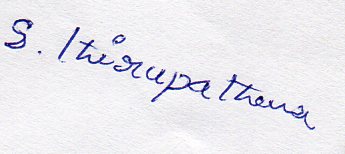 S. Thirupathana